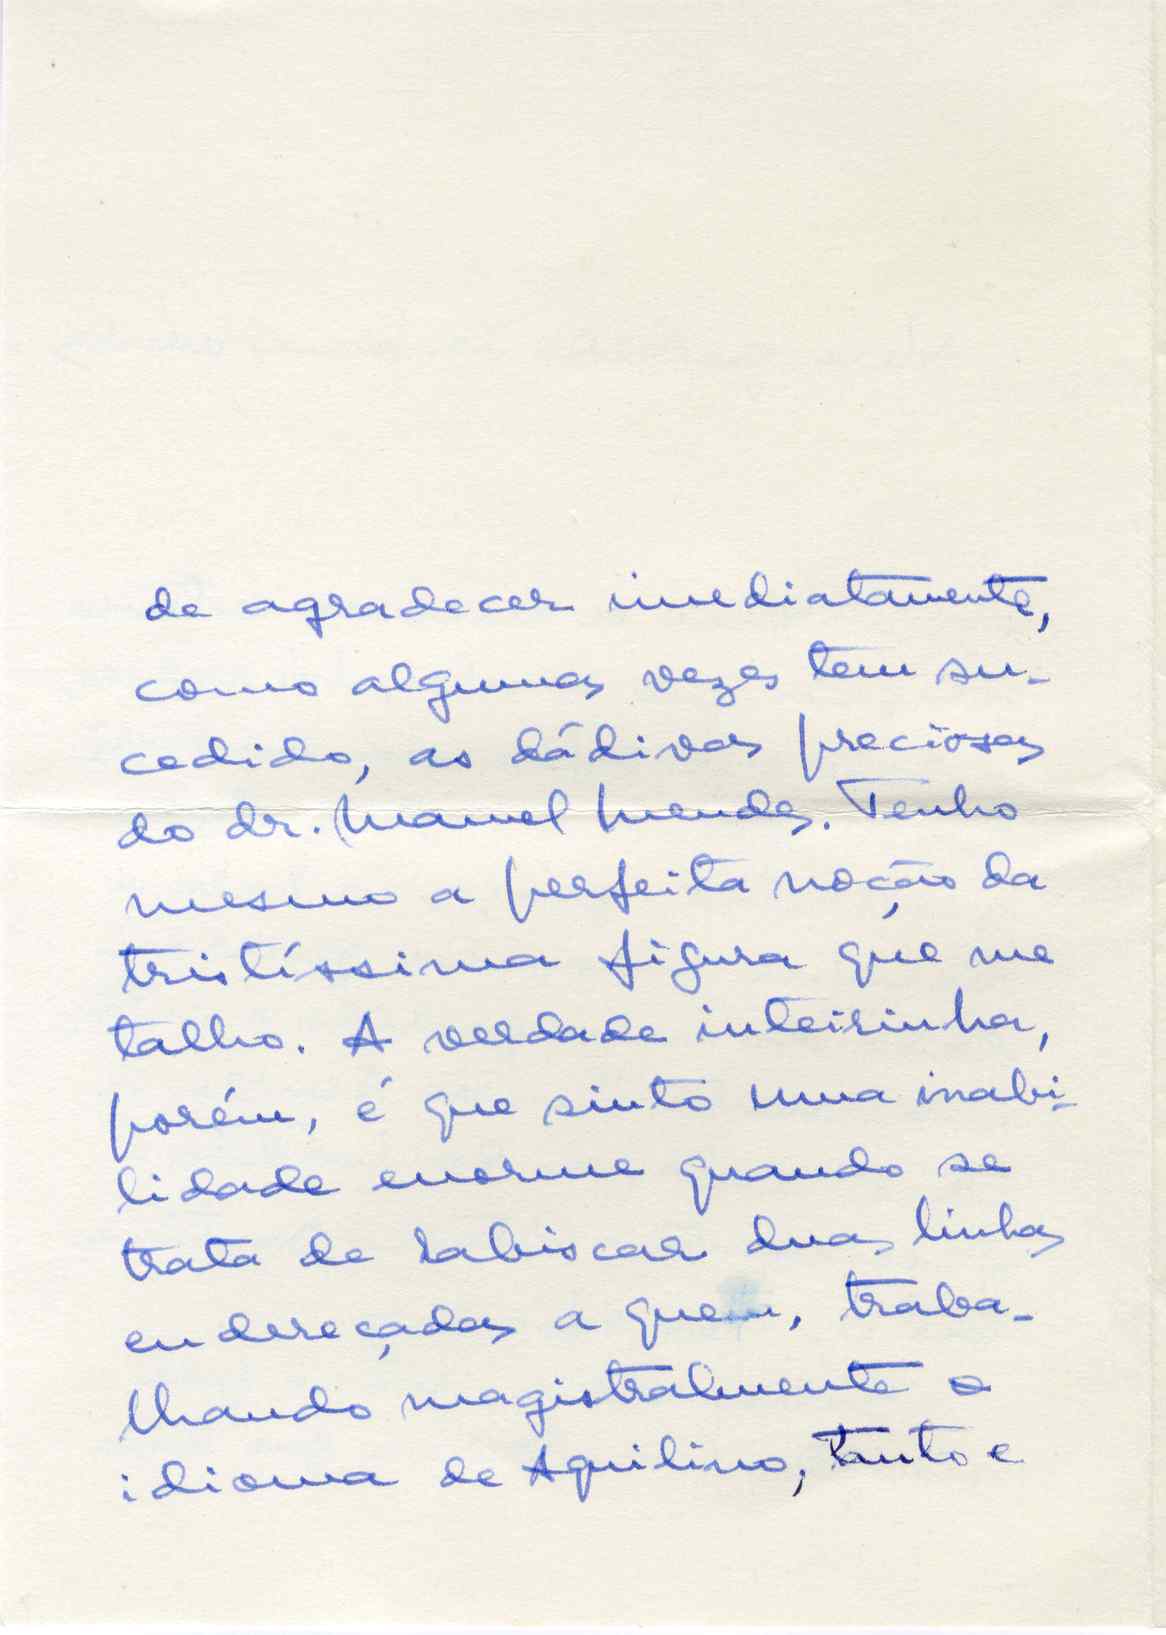 de agradecer imediatamente,
como algumas vezes tem su-
cedido, as dádivas preciosas
do dr. Manuel Mendes. Tenho
mesmo a perfeita noção da
tristíssima figura que me
talho. A verdade inteirinha,
porém, é que sinto uma inabi-
lidade enorme quando se
trata de rabiscar duas linhas
endereçadas a quem, traba-
lhando magistralmente o
idioma de Aquilino, tanto e